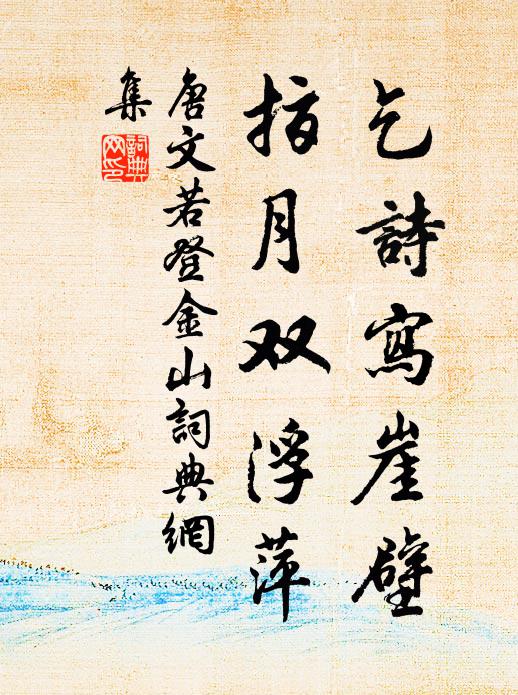 乞詩寫崖壁
指月双浮萍
唐文若登金山詞典網
集
詞典
网印